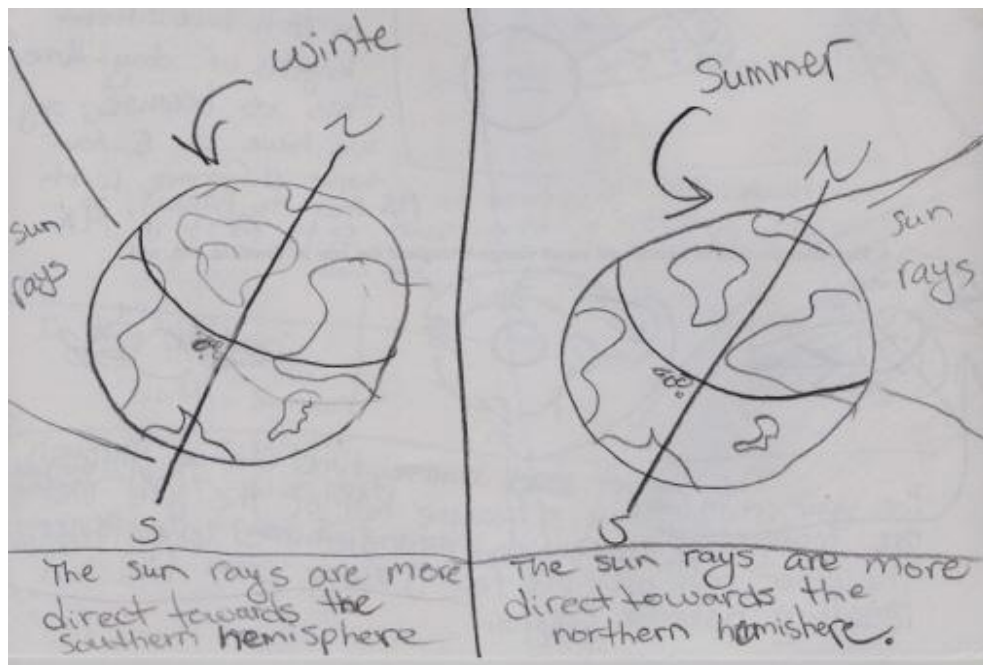 Winte
N
sun
rays
S
The sun rays are more
direct towards the
southern hemisphere
Summer
N
sun
rays
S
The sun rays are more
direct towards the
northern hemishere.